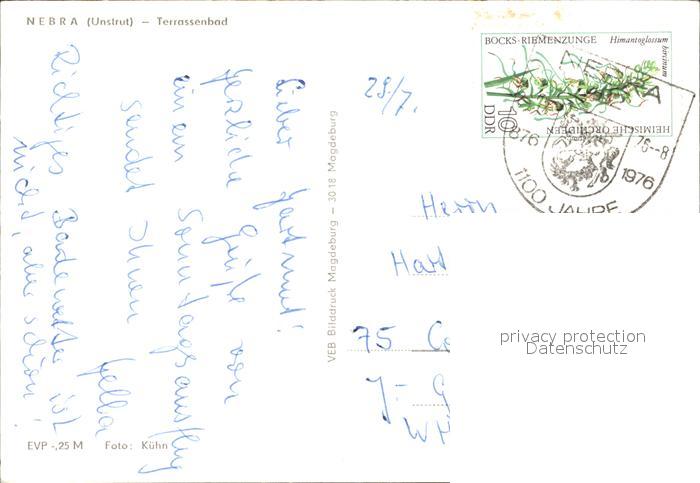 NEBRA (Unstrut) — Terrassenbad
Lieber Hartmut!
Herzliche Grüße von
einem Sonntagsausflug
sendet Ihnen Hella
Richtiges Badewetter ist
nicht, aber schön!
EVP -,25 M Foto: Kühn
VEB Bilddruck Magdeburg — 30 18 Magdeburg
29/7.
BOCKS-RIEMENZUNGE Himantoglossum hircinum
HEIMISCHE ORCHIDEEN
DDR 10
NEBRA
876
1976
76--8
1100 JAHRE
Herrn
Hart
75 Co
J.- G
WH
privacy protection
Datenschutz